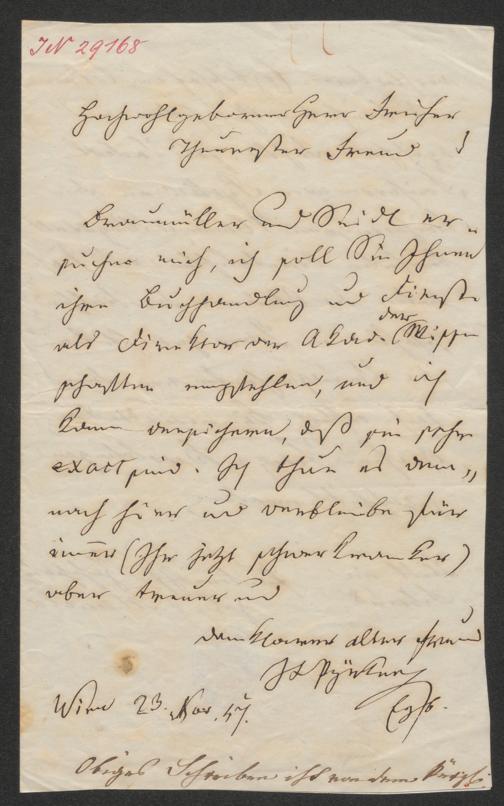 IN 29168
Hochwohlgeborner Herr Freiherr
Theuerster Freund !
Braumüller und Seidl er-
suchen mich, ich soll Sie Ihnen
ihre Buchhandlung und Dienste
als Direktor der Akad. der Wissen
schaften empfehlen, und ich
kann versichern, daß sie sehr
exact sind. Ich thue es dem„
nach hier und verbleibe für
immer (Ihr jetzt schwer kranker)
aber treuer und
dankbarer alter Freund
Pyrker
Wien 23. Nov. 47.
Obiges Schreiben ist von dem